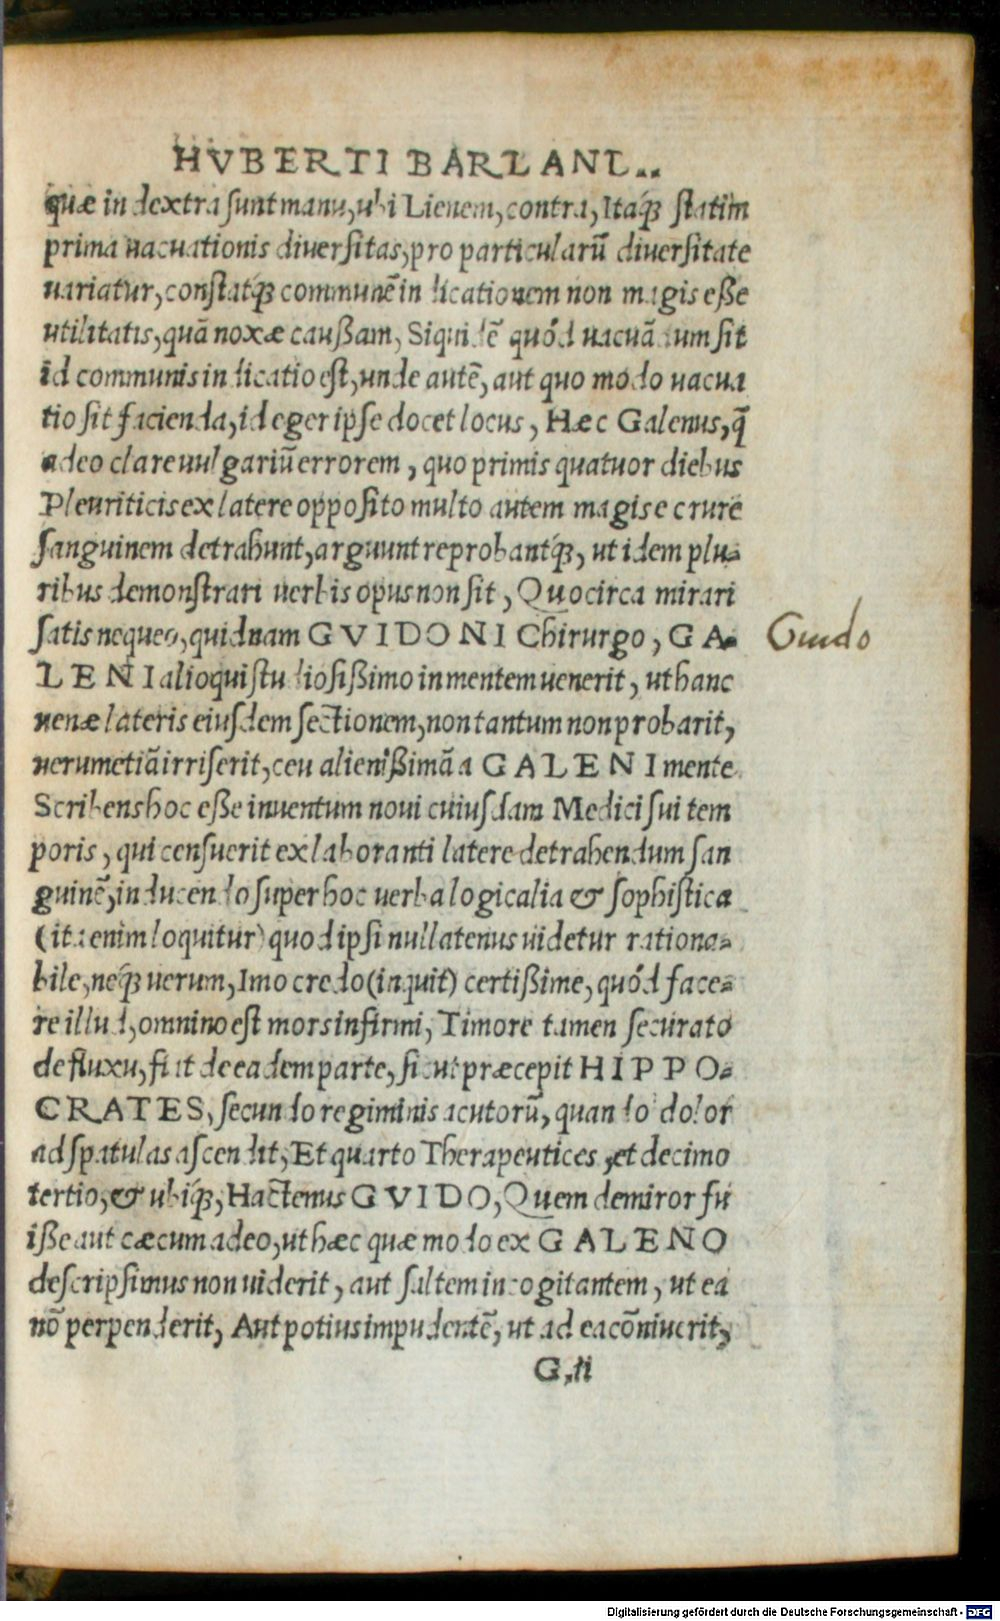 HVBERTI BARLANI..
quæ in dextra sunt manu, ubi Lienem, contra, Itaq́; statim
prima uacuationis diuersitas, pro particularũ diuersitate
uariatur, constatq́; communẽ indicationem non magis eße
utilitatis, quã noxæ caußam, Siquidẽ quód uacuãdum sit
id communis indicatio est, unde autẽ, aut quo modo uacua
tio sit facienda, id eger ipse docet locus, Hæc Galenus, q̃
adeo clare uulgariũ errorem, quo primis quatuor diebus
Pleuriticis ex latere opposito multo autem magis e crure
sanguinem detrahunt, arguunt reprobantq́;, ut idem plu-
ribus demonstrari uerbis opus non sit, Quocirca mirari
satis nequeo, quidnam GVIDONI Chirurgo, GA-
LENI alioqui studiosißimo in mentem uenerit, ut hanc
uenæ lateris eiusdem sectionem, non tantum non probarit,
uerumetiã irriserit, ceu alienißimã a GALENI mente
Scribens hoc eße inuentum noui cuiusdam Medici sui tem
poris, qui censuerit ex laboranti latere detrahendum san
guinẽ, inducendo super hoc uerba logicalia & sophistica
(ita enim loquitur) quod ipsi nullatenus uidetur rationa-
bile, neq́; uerum, Imo credo (inquit) certißime, quód face-
re illud, omnino est mors infirmi, Timore tamen securato
de fluxu, fiat de eadem parte, sicut præcepit HIPPO-
CRATES, secundo regiminis acutorũ, quando dolor
ad spatulas ascendit, Et quarto Therapeutices, et decimo
tertio, & ubiq́;, Hactenus GVIDO, Quem demiror fu
iße aut cæcum adeo, ut hæc quæ modo ex GALENO
descripsimus non uiderit, aut saltem incogitantem, ut ea
nõ perpenderit, Aut potius impudentẽ, ut ad ea cõniuerit,
G,ii
Guido
Digitalisierung gefördert durch die Deutsche Forschungsgemeinschaft - DFG